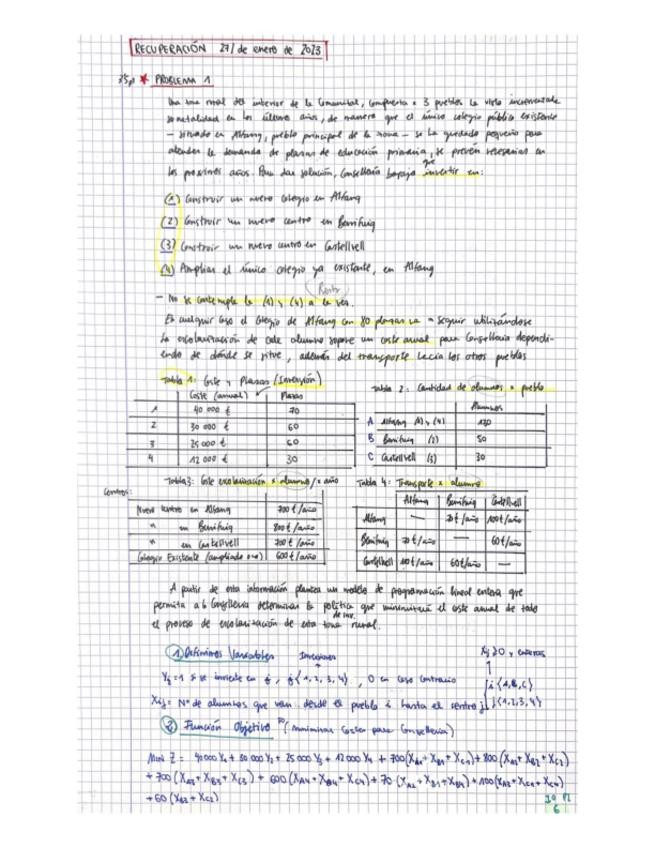 RECUPERACIÓN 27/ de enero de 2023
PROBLEMA 1
Una zona rural del interior de la Comunidad, compuesta x 3 pueblos ha visto incrementada
su natalidad en los últimos años, de manera que el único colegio público existente
– situado en Alfang, pueblo principal de la zona – se ha quedado pequeño para
atender la demanda de plazas de educación primaria, se prevén necesarias en
que
los proximos años. Para dar solución, Consellería invertir en:
(1) Construir un nuevo colegio en Alfang
(2) Construir un nuevo centro en Benifuig
(3) Construir un nuevo centro en Castellvell
(4) Ampliar el único colegio ya existente, en Alfang
– No se contempla la (1) y (4) a la vez.
En cualquier caso el colegio de Alfang con 80 plazas va a seguir utilizándose
La escolarización de cada alumno supone un coste anual para Consellería dependi-
endo de dónde se sitve, además del transporte hacia los otros pueblos
Tabla 1: Coste y Plazas (Inversión)
Coste (anual) Plazas
1 40 000 € 70
2 30 000 € 60
3 25 000 € 60
4 12 000 € 30
Tabla 2: Cantidad de alumnos x pueblo
Alumnos
A Alfang (1) y (4)
B Benifuig (2) 50
C Castellvell (3) 30
Tabla 3: Coste escolarización x alumno / x año
Centros:
Nuevo centro en Alfang 700 €/año
" en Benifuig 800 €/año
" en Castellvell 700 €/año
Colegio Existente (ampliado o no) 600 €/año
Tabla 4: Transporte x alumno
Alfang Benifuig Castellvell
Alfang — 70 €/año 100 €/año
Benifuig 70 €/año — 60 €/año
Castellvell 100 €/año 60 €/año —
A partir de esta información plantea un modelo de programación lineal entera que
permita a la Consellería determinar la política que minimizará el coste anual de todo
de inv.
el proceso de escolarización de esta zona rural.
1) Definimos Variables Inversiones Xij ≥ 0 y enteras
Yj = 1 si se invierte en j, j{1, 2, 3, 4}, 0 en caso contrario i{A,B,C}
Xij = Nº de alumnos que van desde el pueblo i hasta el centro j j{1,2,3,4}
2) Función Objetivo (minimizar Costes para Consellería)
Min Z = 40000 Y1 + 30 000 Y2 + 25 000 Y3 + 12 000 Y4 + 700 (XA1 + XB1 + XC1) + 800 (XA2 + XB2 + XC2)
+ 700 (XA3 + XB3 + XC3) + 600 (XA4 + XB4 + XC4) + 70 (XA2 + XB1 + XB4) + 100 (XA3 + XC1 + XC4)
+ 60 (XB3 + XC2)